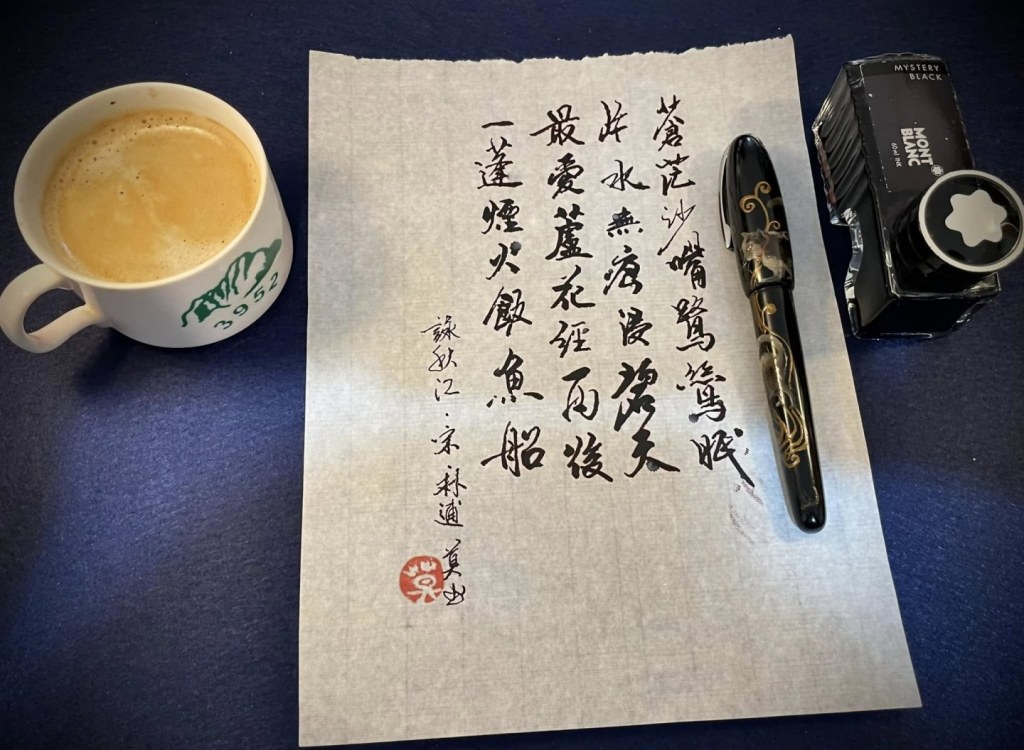 蒼茫沙嘴鷺鷥眠
片水無痕浸碧天
最愛蘆花經雨後
一蓬煙火飯魚船
詠秋江·宋·林逋
3952
MYSTERY
BLACK
MONT
BLANC
60 ml INK